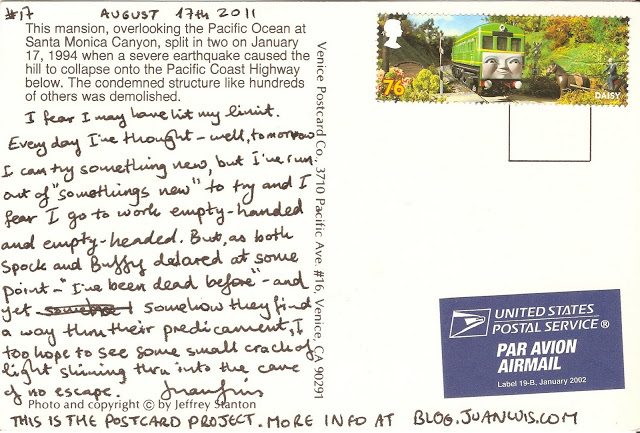 #17 AUGUST 17th 2011
This mansion, overlooking the Pacific Ocean at
Santa Monica Canyon, split in two on January
17, 1994 when a severe earthquake caused the
hill to collapse onto the Pacific Coast Highway
below. The condemned structure like hundreds
of others was demolished.
I fear I may have hit my limit.
Every day I've thought - well, tomorrow
I can try something new, but I've run
out of "somethings new" to try and I
fear I go to work empty-handed
and empty-headed. But, as both
Spock and Buffy delared at some
point - "I've been dead before" - and
yet somehow they find
a way thru their predicament, I
too hope to see some small crack of
light shining thru into the cave
of no escape.
Photo and copyright © by Jeffrey Stanton
THIS IS THE POSTCARD PROJECT. MORE INFO AT BLOG.JUANLUIS.COM
Venice Postcard Co., 3710 Pacific Ave. #16, Venice, CA 90291
76
DAISY
UNITED STATES
POSTAL SERVICE ®
PAR AVION
AIRMAIL
Label 19-B, January 2002